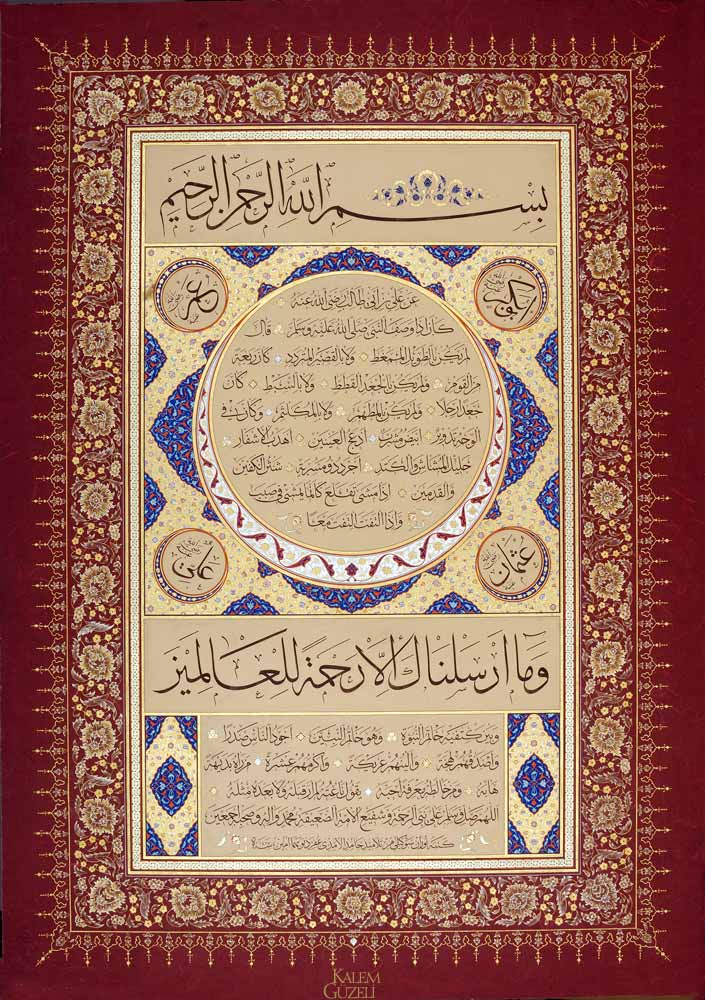 بسم الله الرحمن الرحيم
ابوبكر
عمر
عن علي بن أبي طالب رضي الله عنه
كان إذا وصف النبي صلى الله عليه وسلم قال
لم يكن بالطويل الممغط ولا بالقصير المتردد كان ربعة
من القوم ولم يكن بالجعد القطط ولا بالسبط كان
جعدا رجلا ولم يكن بالمطهم ولا بالمكلثم وكان في
الوجه تدوير أبيض مشرب أدعج العينين أهدب الأشفار
جليل المشاش والكتد أجرد ذو مسربة شثن الكفين
والقدمين إذا مشى تقلع كأنما يمشي في صبب
وإذا التفت التفت معا
عثمان
علي
وما أرسلناك إلا رحمة للعالمين
وبين كتفيه خاتم النبوة وهو خاتم النبيين أجود الناس صدرا
وأصدقهم لهجة وألينهم عريكة وأكرمهم عشرة من رآه بديهة
هابه ومن خالطه معرفة أحبه يقول ناعته لم أر قبله ولا بعده مثله
اللهم صل وسلم على نبي الرحمة وشفيع الأمة محمد وآله وصحبه أجمعين
KALEM
GÜZELİ